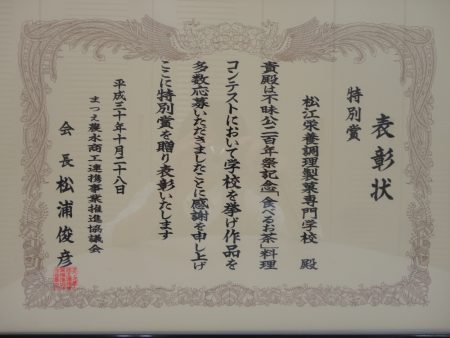 表彰状
特別賞
松江栄養調理製菓専門学校 殿
貴殿は不昧公二百年祭記念「食べるお茶」料理
コンテストにおいて学校を挙げ作品を
多数応募いただきましたことに感謝を申し上げ
ここに特別賞を贈り表彰いたします
平成三十年十月二十八日
まつえ農水商工連携事業推進協議会
会長 松浦俊彦